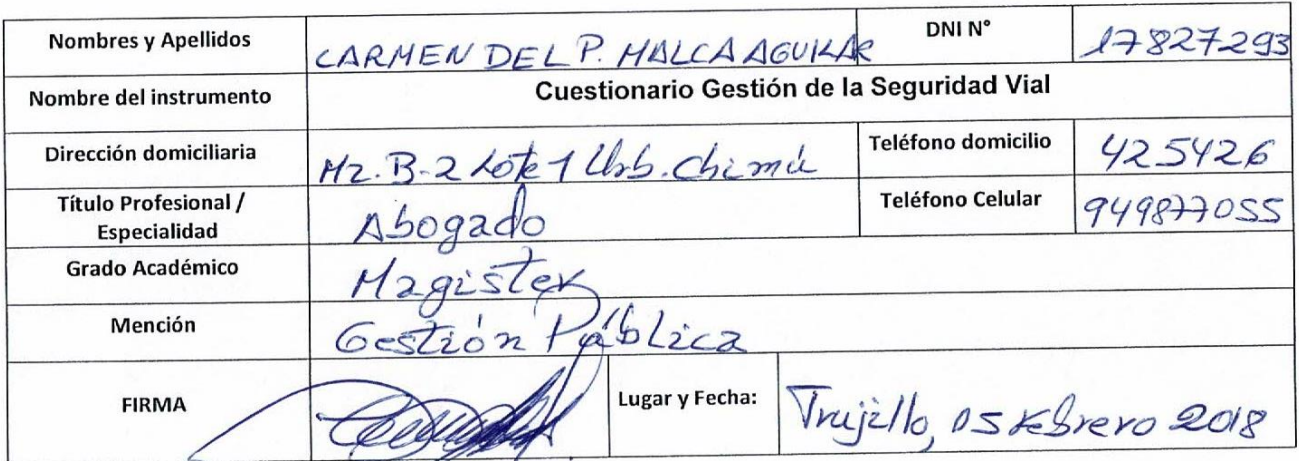 Nombres y Apellidos CARMEN DEL P. MALCA AGUILAR DNI N° 17827293
Nombre del instrumento Cuestionario Gestión de la Seguridad Vial
Dirección domiciliaria Mz. B-2 Lote 1 Urb. Chimú Teléfono domicilio 425426
Título Profesional / Especialidad Abogado Teléfono Celular 949877055
Grado Académico Magister
Mención Gestión Pública
FIRMA Lugar y Fecha: Trujillo, 05 febrero 2018